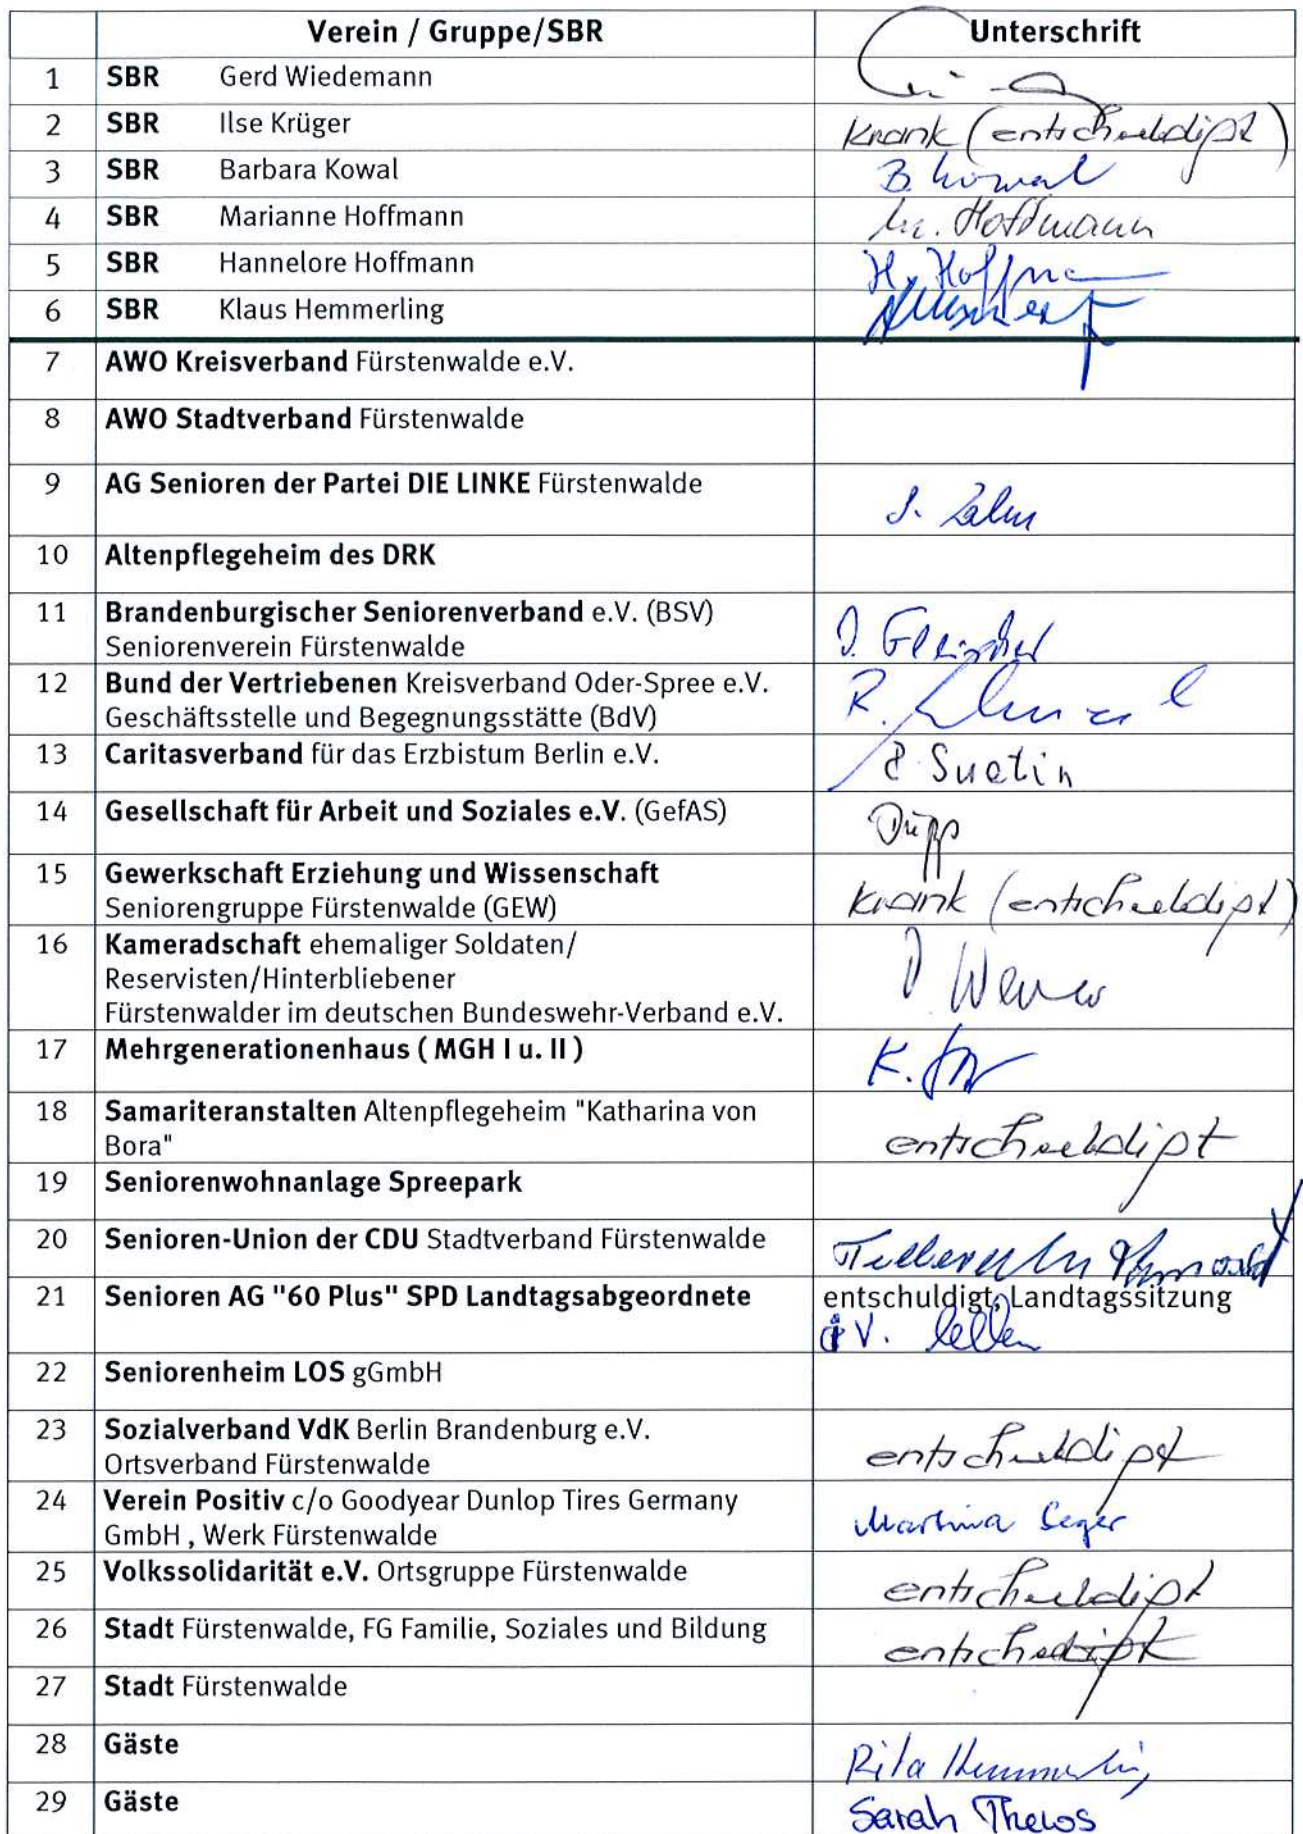 Verein / Gruppe/SBR Unterschrift
1 SBR Gerd Wiedemann
2 SBR Ilse Krüger Krank (entschuldigt)
3 SBR Barbara Kowal B. Kowal
4 SBR Marianne Hoffmann M. Hoffmann
5 SBR Hannelore Hoffmann H. Hoffma
6 SBR Klaus Hemmerling
7 AWO Kreisverband Fürstenwalde e.V.
8 AWO Stadtverband Fürstenwalde
9 AG Senioren der Partei DIE LINKE Fürstenwalde
10 Altenpflegeheim des DRK
11 Brandenburgischer Seniorenverband e.V. (BSV)
Seniorenverein Fürstenwalde
12 Bund der Vertriebenen Kreisverband Oder-Spree e.V. R.
Geschäftsstelle und Begegnungsstätte (BdV)
13 Caritasverband für das Erzbistum Berlin e.V. Suetin
14 Gesellschaft für Arbeit und Soziales e.V. (GefAS)
15 Gewerkschaft Erziehung und Wissenschaft Krank (entschuldigt)
Seniorengruppe Fürstenwalde (GEW)
16 Kameradschaft ehemaliger Soldaten/
Reservisten/Hinterbliebener
Fürstenwalder im deutschen Bundeswehr-Verband e.V.
17 Mehrgenerationenhaus ( MGH I u. II ) K.
18 Samariteranstalten Altenpflegeheim "Katharina von entschuldigt
Bora"
19 Seniorenwohnanlage Spreepark
20 Senioren-Union der CDU Stadtverband Fürstenwalde
21 Senioren AG "60 Plus" SPD Landtagsabgeordnete entschuldigt, Landtagssitzung
i.V.
22 Seniorenheim LOS gGmbH
23 Sozialverband VdK Berlin Brandenburg e.V. entschuldigt
Ortsverband Fürstenwalde
24 Verein Positiv c/o Goodyear Dunlop Tires Germany Martina Seger
GmbH , Werk Fürstenwalde
25 Volkssolidarität e.V. Ortsgruppe Fürstenwalde entschuldigt
26 Stadt Fürstenwalde, FG Familie, Soziales und Bildung entschuldigt
27 Stadt Fürstenwalde
28 Gäste Rita Hemmerling
29 Gäste Sarah Thews